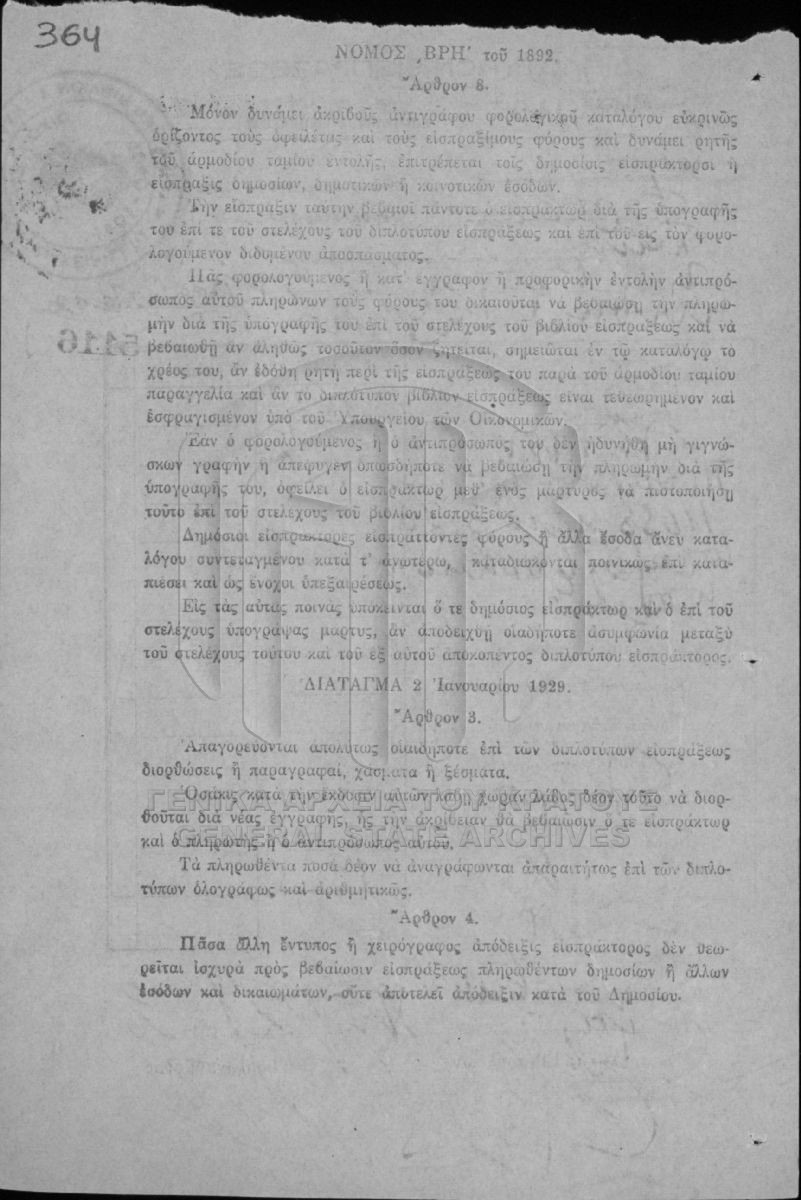 364
ΝΟΜΟΣ ͵ΒΡΗʹ τοῦ 1892.
Ἄρθρον 8.
Μόνον δυνάμει ἀκριβοῦς ἀντιγράφου φορολογικοῦ καταλόγου εὐκρινῶς
ὁρίζοντος τοὺς ὀφειλέτας καὶ τοὺς εἰσπραξίμους φόρους καὶ δυνάμει ρητῆς
τοῦ ἁρμοδίου ταμίου ἐντολῆς, ἐπιτρέπεται τοῖς δημοσίοις εἰσπράκτορσι ἡ
εἴσπραξις δημοσίων, δημοτικῶν ἢ κοινοτικῶν ἐσόδων.
Τὴν εἴσπραξιν ταύτην βεβαιοῖ πάντοτε ὁ εἰσπράκτωρ διὰ τῆς ὑπογραφῆς
του ἐπί τε τοῦ στελέχους τοῦ διπλοτύπου εἰσπράξεως καὶ ἐπὶ τοῦ εἰς τὸν φορο-
λογούμενον διδομένου ἀποσπάσματος.
Πᾶς φορολογούμενος ἢ κατ' ἔγγραφον ἢ προφορικὴν ἐντολὴν ἀντιπρό-
σωπος αὐτοῦ πληρώνων τοὺς φόρους του δικαιοῦται νὰ βεβαιώσῃ τὴν πληρω-
μὴν διὰ τῆς ὑπογραφῆς του ἐπὶ τοῦ στελέχους τοῦ βιβλίου εἰσπράξεως καὶ νὰ
βεβαιωθῇ ἂν ἀληθῶς τοσοῦτον ὅσον ζητεῖται, σημειῶται ἐν τῷ καταλόγῳ τὸ
χρέος του, ἂν ἐδόθη ρητὴ περὶ τῆς εἰσπράξεώς του παρὰ τοῦ ἁρμοδίου ταμίου
παραγγελία καὶ ἂν τὸ διπλότυπον βιβλίον εἰσπράξεως εἶναι τεθεωρημένον καὶ
ἐσφραγισμένον ὑπὸ τοῦ Ὑπουργείου τῶν Οἰκονομικῶν.
Ἐὰν ὁ φορολογούμενος ἢ ὁ ἀντιπρόσωπός του δὲν ἠδυνήθη μὴ γιγνώ-
σκων γραφὴν ἢ ἀπέφυγεν ὁπωσδήποτε νὰ βεβαιώσῃ τὴν πληρωμὴν διὰ τῆς
ὑπογραφῆς του, ὀφείλει ὁ εἰσπράκτωρ μεθ' ἑνὸς μάρτυρος νὰ πιστοποιήσῃ
τοῦτο ἐπὶ τοῦ στελέχους τοῦ βιβλίου εἰσπράξεως.
Δημόσιοι εἰσπράκτορες εἰσπράττοντες φόρους ἢ ἄλλα ἔσοδα ἄνευ κατα-
λόγου συντεταγμένου κατὰ τ' ἀνωτέρω, καταδιώκονται ποινικῶς ἐπὶ κατα-
πιέσει καὶ ὡς ἔνοχοι ὑπεξαιρέσεως.
Εἰς τὰς αὐτὰς ποινὰς ὑπόκεινται ὅ τε δημόσιος εἰσπράκτωρ καὶ ὁ ἐπὶ τοῦ
στελέχους ὑπογράψας μάρτυς, ἂν ἀποδειχθῇ οἱαδήποτε ἀσυμφωνία μεταξὺ
τοῦ στελέχους τούτου καὶ τοῦ ἐξ αὐτοῦ ἀποκοπέντος διπλοτύπου εἰσπράκτορος.
ΔΙΑΤΑΓΜΑ 2 Ἰανουαρίου 1929.
Ἄρθρον 3.
Ἀπαγορεύονται ἀπολύτως οἱαιδήποτε ἐπὶ τῶν διπλοτύπων εἰσπράξεως
διορθώσεις ἢ παραγραφαί, χάσματα ἢ ξέσματα.
Ὁσάκις κατὰ τὴν ἔκδοσιν αὐτῶν λάβῃ χώραν λάθος δέον τοῦτο νὰ διορ-
θοῦται διὰ νέας ἐγγραφῆς, ἧς τὴν ἀκρίβειαν θὰ βεβαιῶσιν ὅ τε εἰσπράκτωρ
καὶ ὁ πληρωτὴς ἢ ὁ ἀντιπρόσωπος αὐτοῦ.
ΓΕΝΙΚΑ ΑΡΧΕΙΑ ΤΟΥ ΚΡΑΤΟΥΣ
GENERAL STATE ARCHIVES
Τὰ πληρωθέντα ποσὰ δέον νὰ ἀναγράφωνται ἀπαραιτήτως ἐπὶ τῶν διπλο-
τύπων ὁλογράφως καὶ ἀριθμητικῶς.
Ἄρθρον 4.
Πᾶσα ἄλλη ἔντυπος ἢ χειρόγραφος ἀπόδειξις εἰσπράκτορος δὲν θεω-
ρεῖται ἰσχυρὰ πρὸς βεβαίωσιν εἰσπράξεως πληρωθέντων δημοσίων ἢ ἄλλων
ἐσόδων καὶ δικαιωμάτων, οὔτε ἀποτελεῖ ἀπόδειξιν κατὰ τοῦ Δημοσίου.